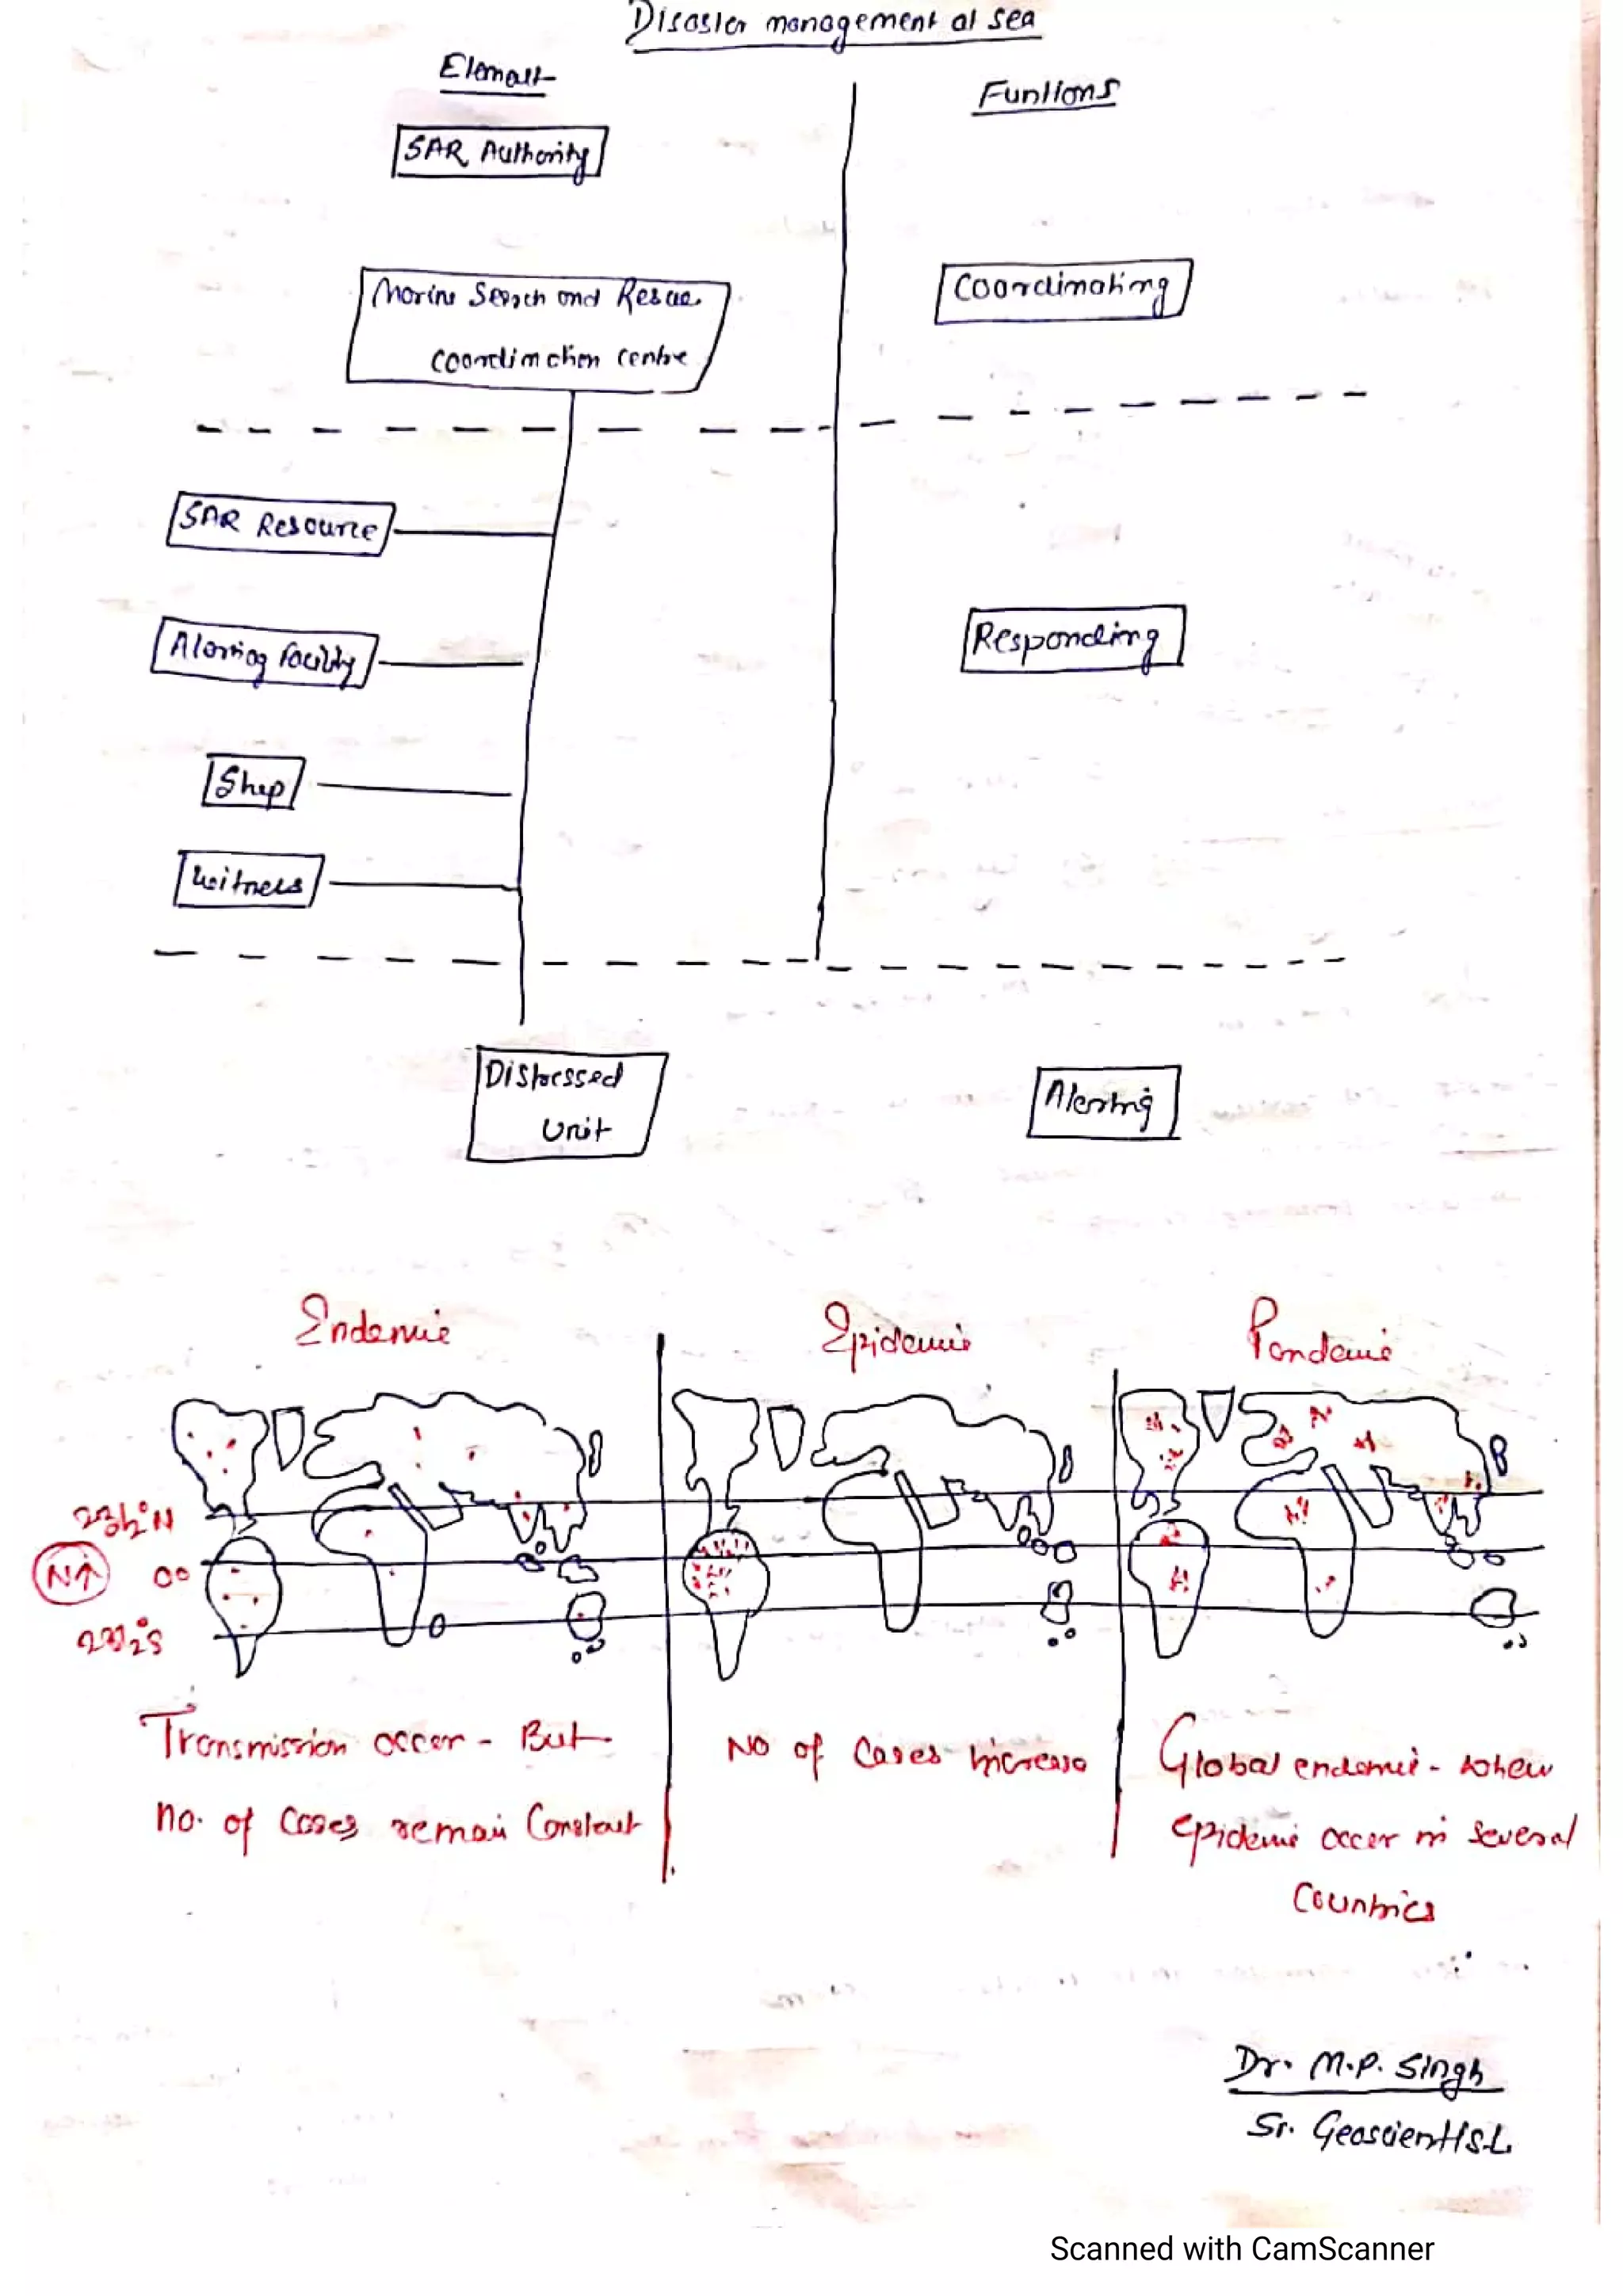 Disaster management at sea
Element
Funtions
SAR Authority
Marine Search and Rescue
coordination centre
Coordinating
SAR Resource
Alerting facility
Responding
Ship
Witness
Distressed
Unit
Alerting
Endemic
Epidemic
Pandemic
23½°N
N↑
0°
23½°S
Transmission occer - But
no. of Cases remain Constant
No of Cases increase
Global endemic - when
epidemic occer in several
Countries
Dr. M.P. Singh
Sr. Geoscientist.
Scanned with CamScanner